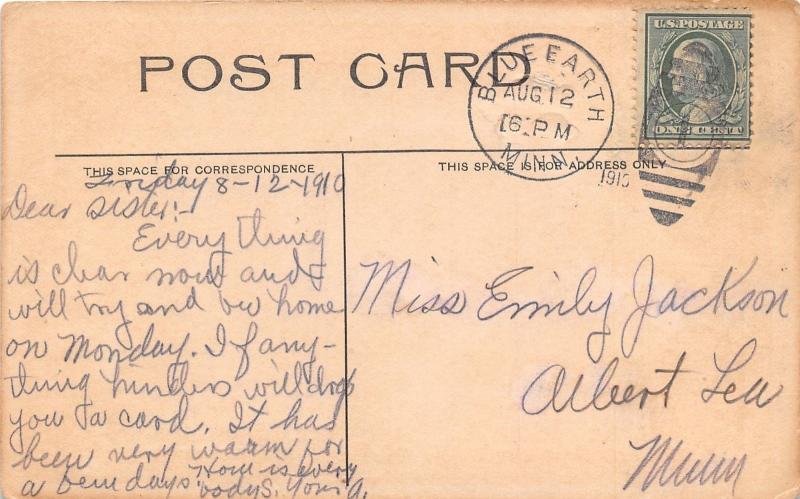 POST CARD
BLUE EARTH
AUG 12
6 PM
MINN.
1910
U.S. POSTAGE
ONE CENT
THIS SPACE FOR CORRESPONDENCE
THIS SPACE IS FOR ADDRESS ONLY
Friday 8-12-1910
Dear Sister:-
Every thing
is clear now and
will try and be home
on Monday. If any-
thing hinders will drop
you a card. It has
been very warm for
a few days. How is every
bodys.
Miss Emily Jackson
Albert Lea
Minn